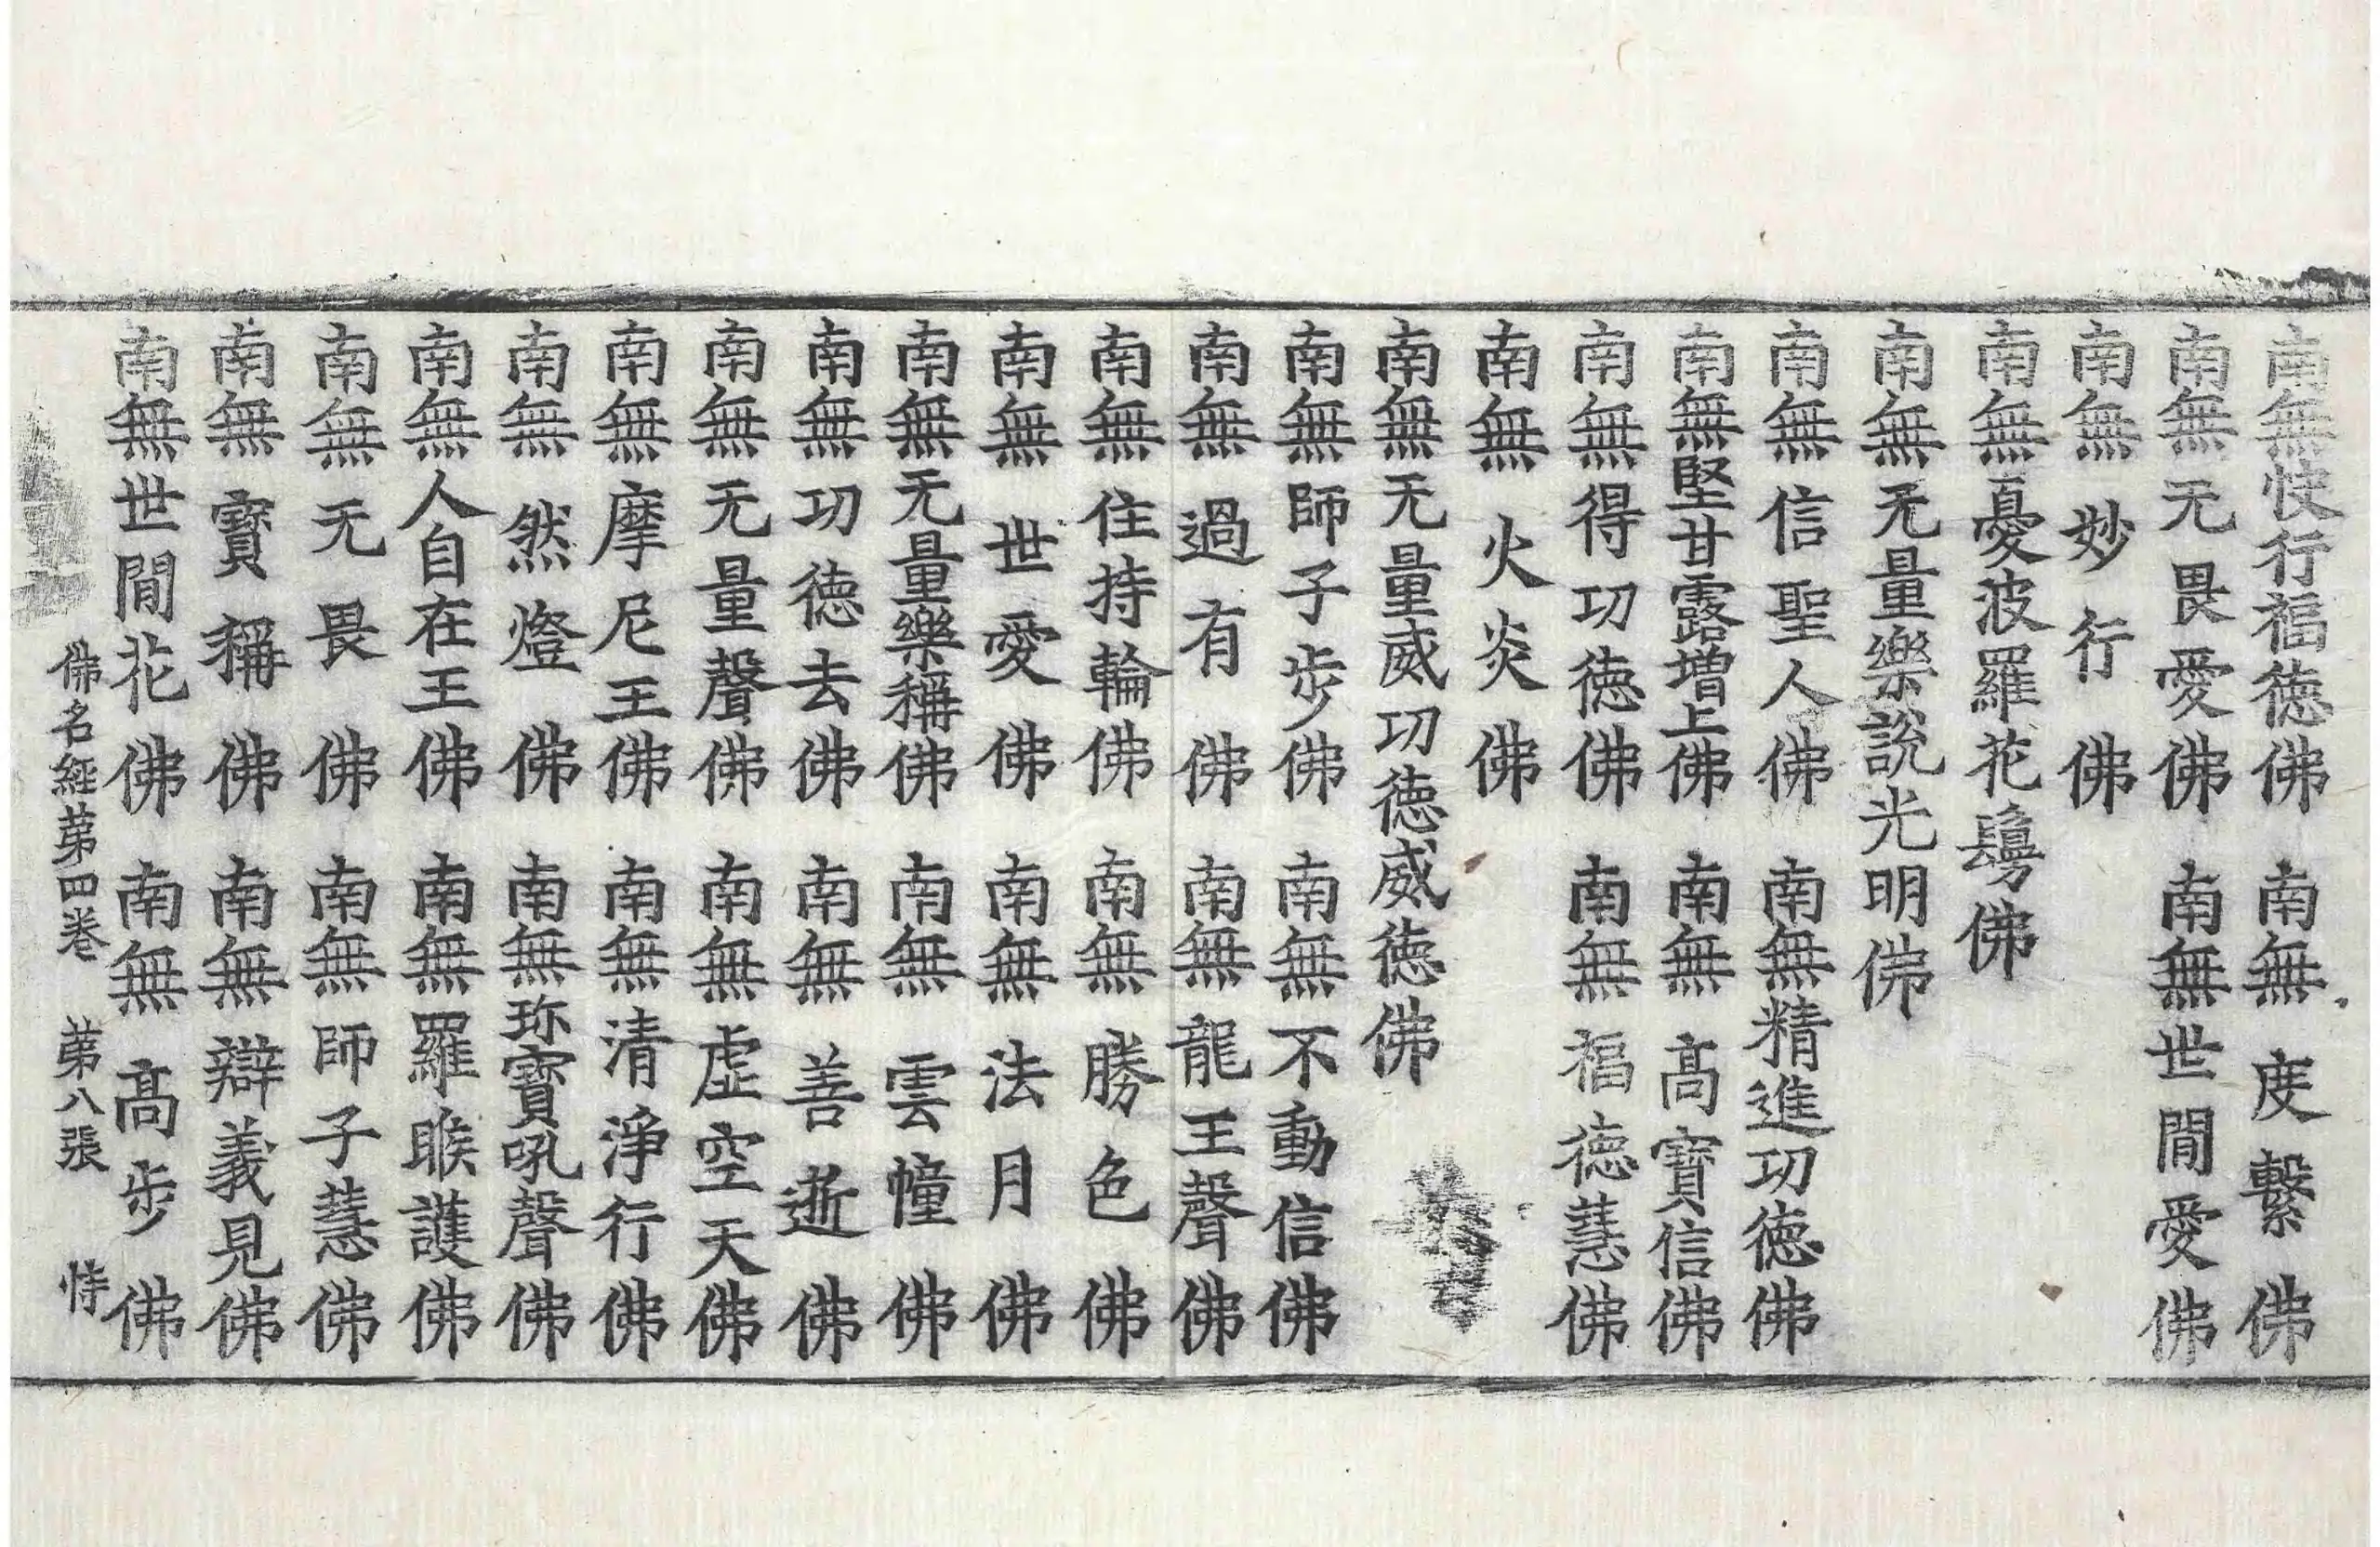 南無快行福徳佛　南無度繫佛
南無无畏愛佛　南無世間愛佛
南無妙行佛
南無憂波羅花鬘佛
南無无量樂說光明佛
南無信聖人佛　南無精進功徳佛
南無堅甘露增上佛　南無髙寶信佛
南無得功徳佛　南無福徳慧佛
南無火炎佛
南無无量威功徳威徳佛
南無師子步佛　南無不動信佛
南無過有佛　南無龍王聲佛
南無住持輪佛　南無勝色佛
南無世愛佛　南無法月佛
南無无量樂稱佛　南無雲幢佛
南無功徳去佛　南無善逝佛
南無无量聲佛　南無虛空天佛
南無摩尼王佛　南無清淨行佛
南無然燈佛　南無珎寶吼聲佛
南無人自在王佛　南無羅睺護佛
南無无畏佛　南無師子慧佛
南無寶稱佛　南無辯義見佛
南無世間花佛　南無髙步佛
佛名經苐四卷　苐八張　恃